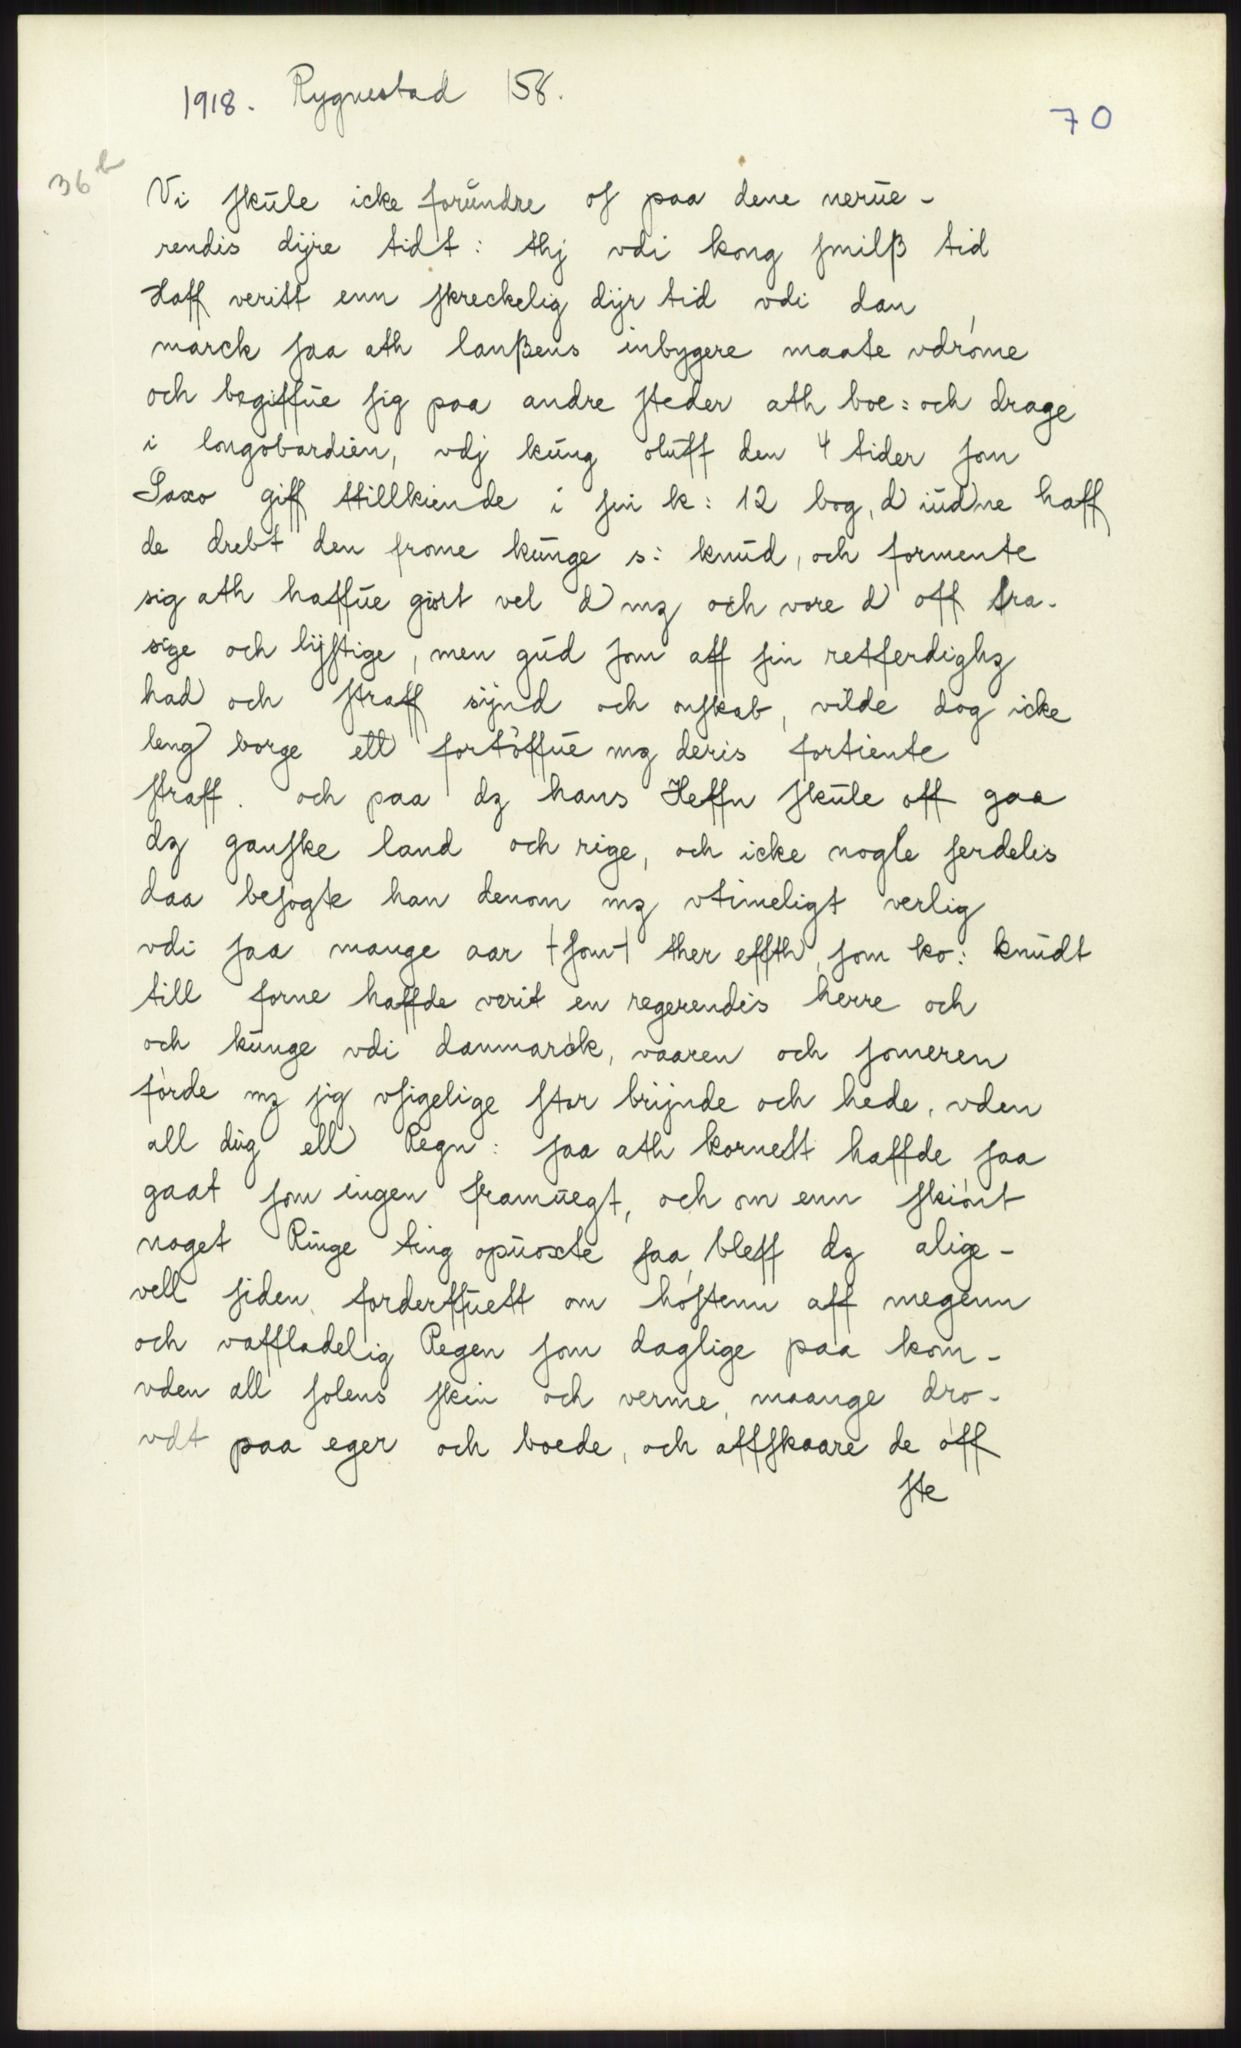 1918. Rygnestad 158.
70
36b
Vi skule icke forundre os paa dene nerue-
rendis dÿre tidt: thj vdi kong smilß tid
Haff veritt enn skreckelig dÿr tid vdi dan
marck saa ath lanßens inbygere maate vdrøme
och begiffue sig paa andre steder ath boe: och drage
i longobardien, vdj kung oluff den 4 tider som
Saxo giff ttillkiende i sin k: 12 bog, d iudne haff
de drebt den frome kunge s: knud, och formente
sig ath haffue giort vel d mz och vore d off tra-
sige och lÿstige, men gud som aff sin retferdighz
had och straff sÿnd och onskab, vilde dog icke
leng borge ett fortøffue mz deris fortiente
straff. och paa dz hans Heffn skule off gaa
dz ganske land och rige, och icke nogle serdelis
daa besøgte han denom mz vtimeligt verlig
vdi saa mange aar +som+ ther effth, som ko: knudt
till forne haffde verit en regerendis herre och
och kunge vdi danmarck, vaaren och someren
førde mz sig vsigelige stor brÿnde och hede, vden
all dug ell Regn: saa ath kornett haffde saa
gaat som ingen framuegt, och om enn skiønt
noget Ringe ting opuoxte saa bleff dz alige-
vell siden forderffuett om høstenn aff megenn
och vaffladelig Regen som daglige paa kom-
vden all solens skin och verme, maange dro-
vdt paa eger och boede, och affskaare de off
ste